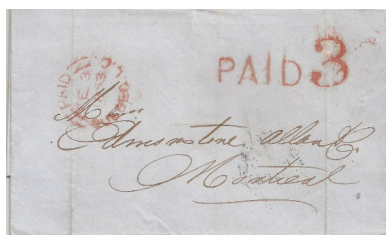 PAID 3
PAID
Edmonstone Allan & Co.
Montreal